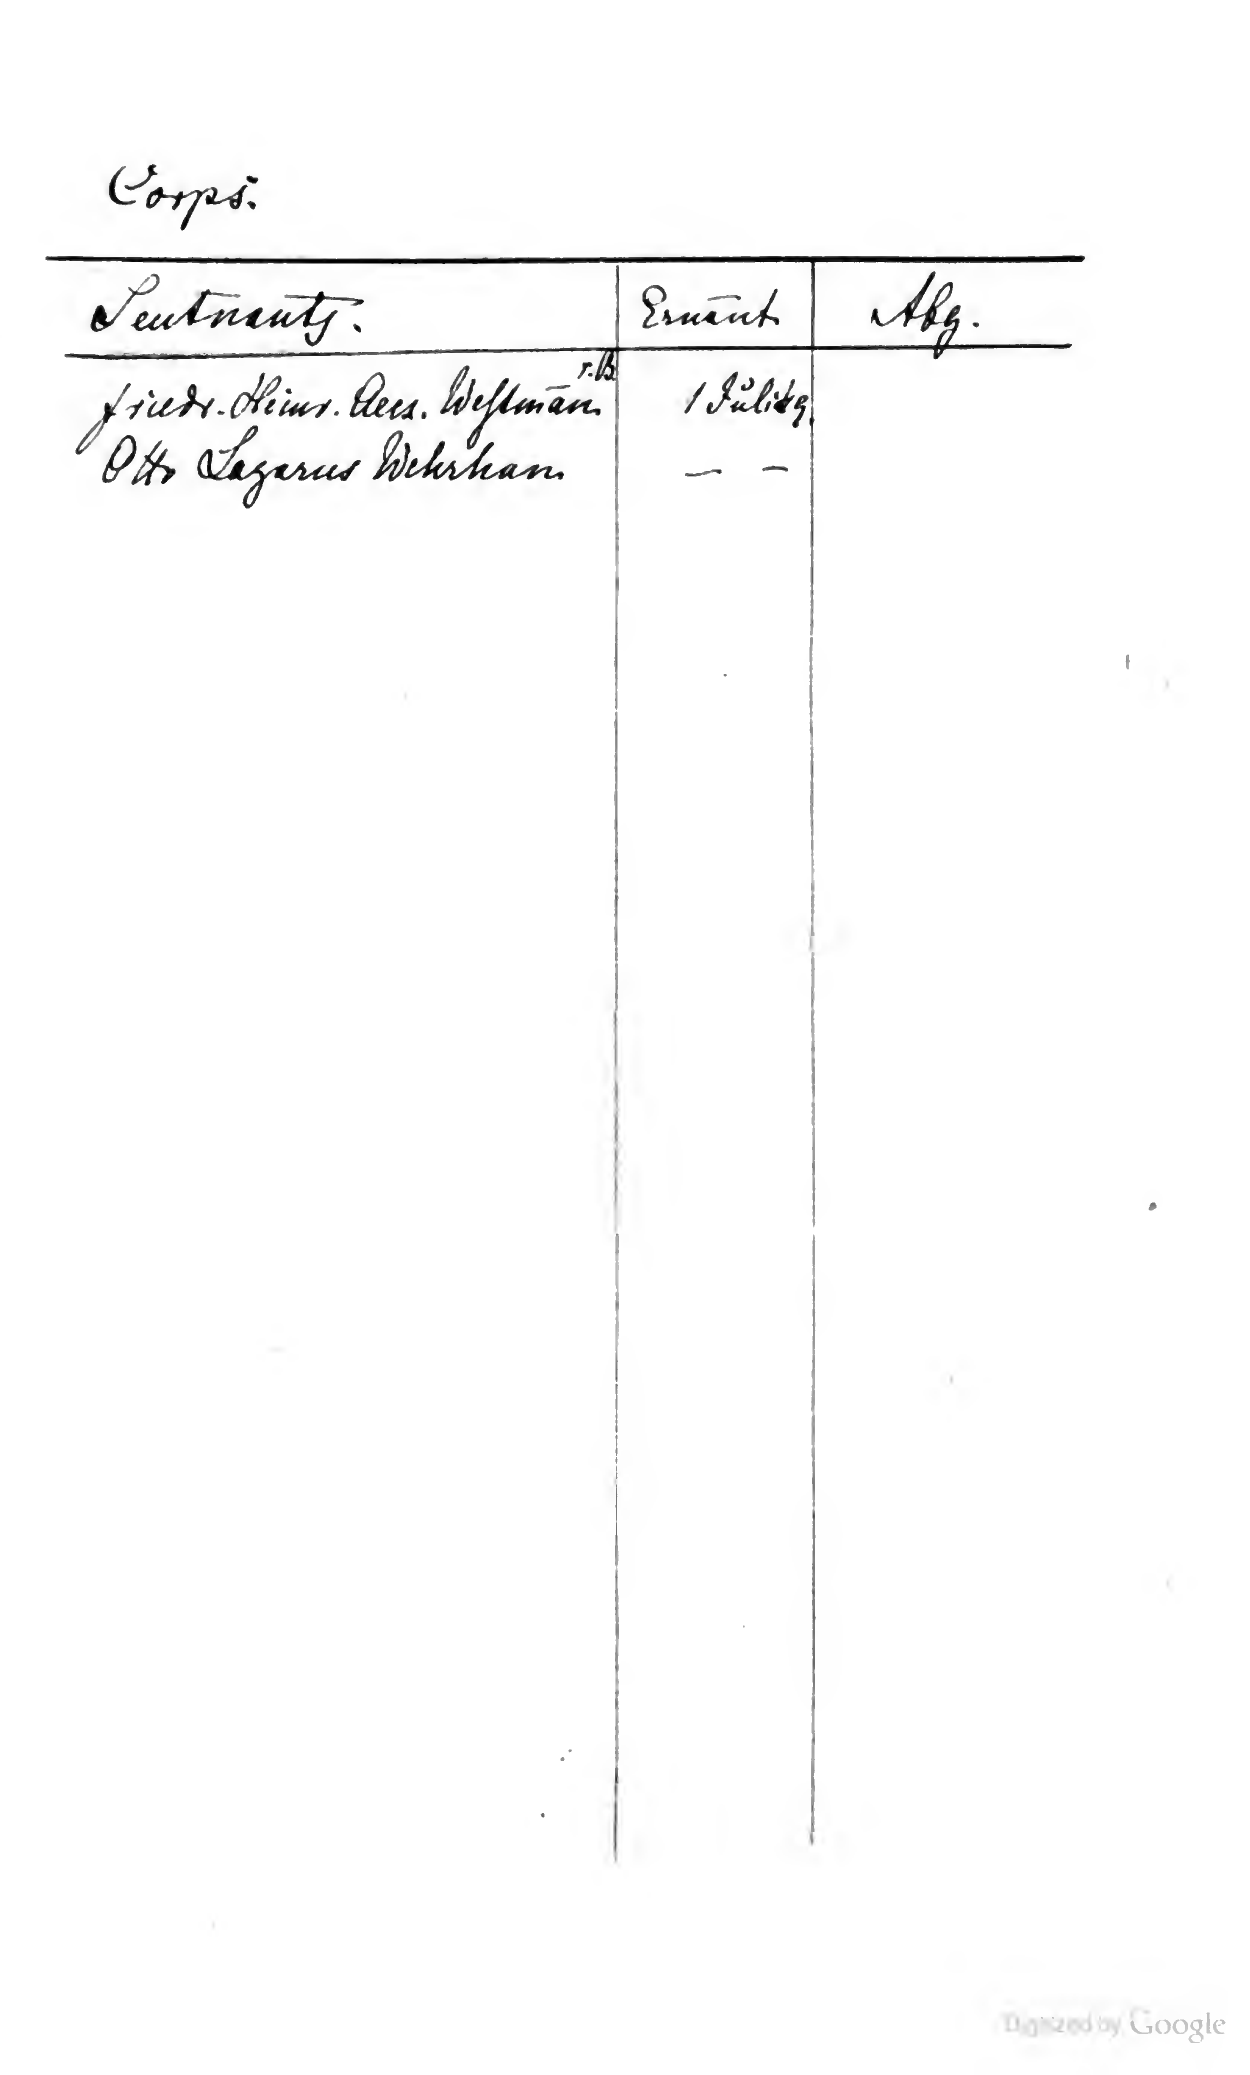 Corps.
Leutnants. Ernan̄t. Abg.
Friedr. Heinr. Westman̄ r. B.
Otto Lazarus Wehrhan. — —
Digitized by Google